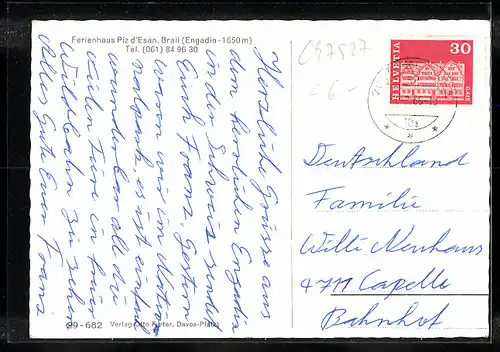 Ferienhaus Piz d'Esan, Brail (Engadin - 1650 m)
Tel. (061) 84 96 30
Herzliche Grüsse aus
dem herrlichen Engadin
in der Schweiz sendet
Euch Franz. Gestern
waren wir im Natio
nalpark, es ist einfach
wunderbar all die
vielen Tiere in freier
Wildbahn zu sehen
Alles Gute Euer Franz
99 - 682 Verlag Otto Furter, Davos-Platz
C47527
HELVETIA
30
GAIS
Deutschland
Familie
Willi Neuhaus
4711 Capelle
Bahnhof